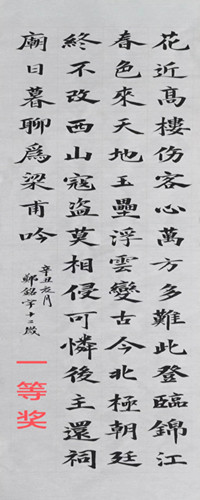 花近髙樓傷客心萬方多難此登臨錦江
春色來天地玉壘浮雲變古今北極朝廷
終不改西山寇盜莫相侵可憐後主還祠
廟日暮聊爲梁甫吟
辛丑月
鄭銘宇十二歲
一等奖